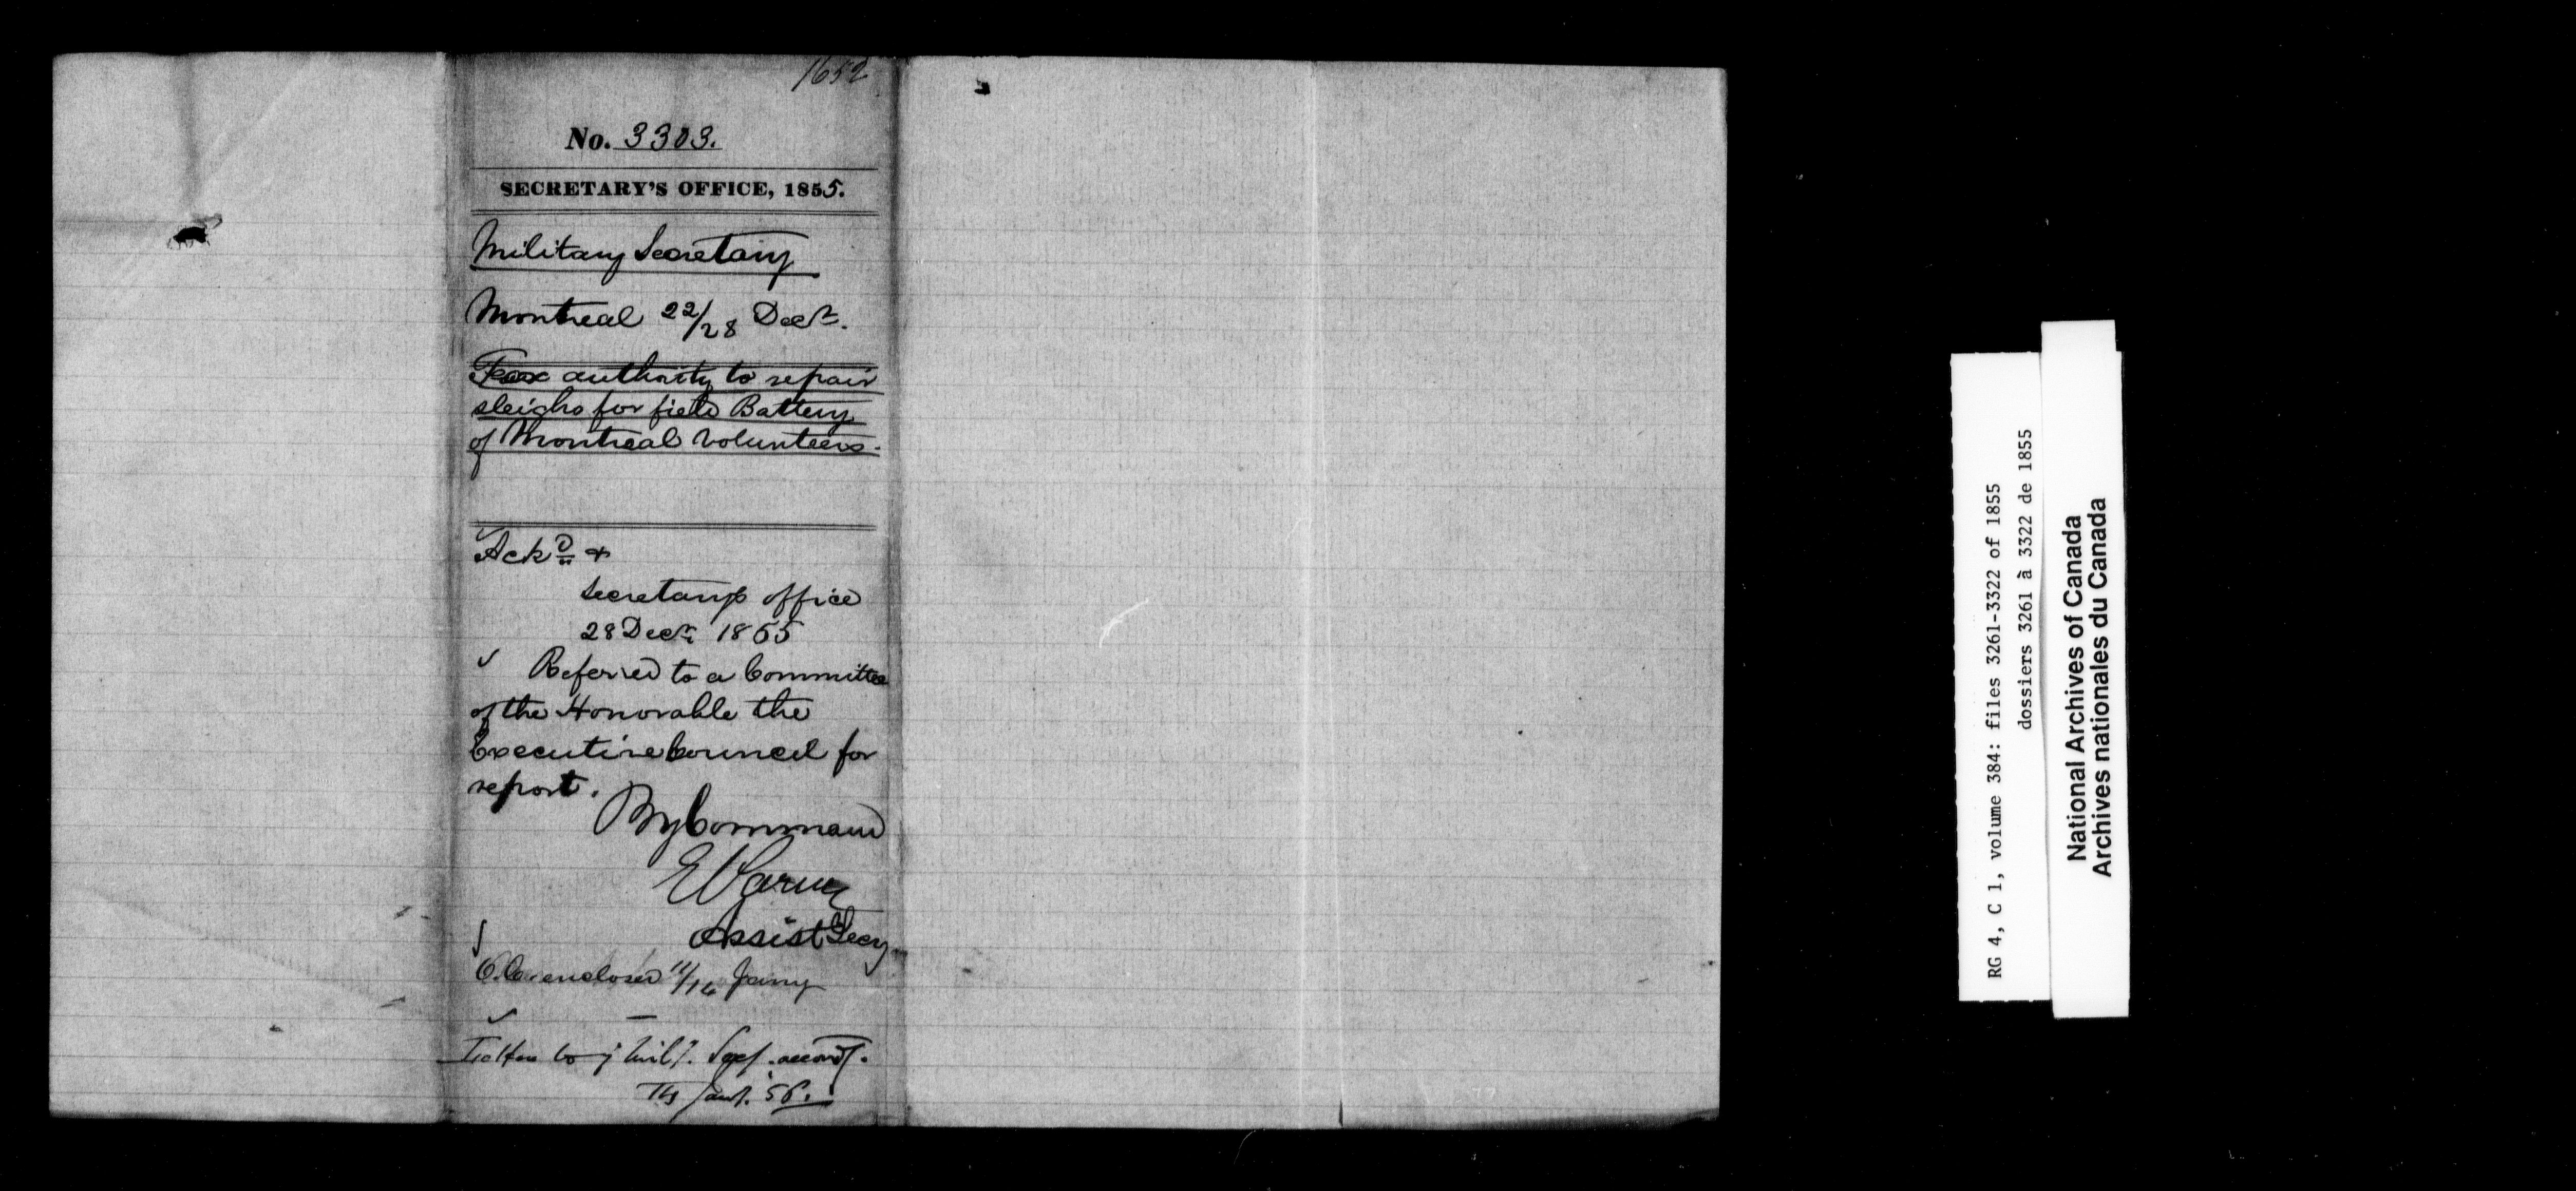 1652
No. 3303.
SECRETARY'S OFFICE, 1855.
Military Secretary
Montreal 22/28 Decr.
For authority to repair
sleighs for field Battery
of Montreal Volunteers.
Ackd +
Secretary's office
28 Decr. 1855
Referred to a Committee
of the Honorable the
Executive Council for
report.
By Command
E Parent
Assist Secy.
O.C. enclosed 11/14 Jany
Letter to Milt. Secy. accordy.
14 Jany. '56.
RG 4, C 1, volume 384: files 3261-3322 of 1855
dossiers 3261 à 3322 de 1855
National Archives of Canada
Archives nationales du Canada